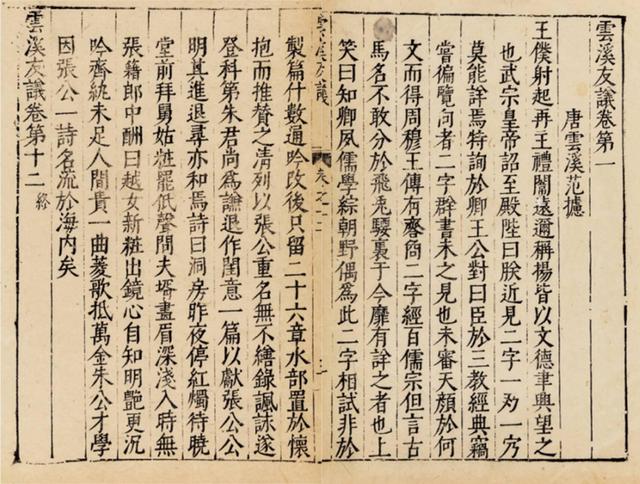 雲溪友議卷第一
唐雲溪范攄
王僕射起再王禮闈遠邇稱揚皆以文德聿興望之
也武宗皇帝詔至殿陛曰朕近見二字一
莫能詳焉特詢於卿王公對曰臣於三教經典竊
嘗徧覽向者二字群書未之見也未審天顏於何
文而得周穆王傳有二字經百儒宗但言古
馬名不敢分於飛兎騕褭于今靡有詳之者也上
笑曰知卿夙儒學綜朝野偶爲此二字相試非於
雲溪友議
卷之
製篇什數通吟改後只留二十六章水部置於懷
抱而推賛之清列以張公重名無不繕錄諷詠遂
登科第朱君尚爲謙退作閨意一篇以獻張公公
明其進退尋亦和焉詩曰洞房昨夜停紅燭待曉
堂前拜舅姑粧罷低聲問夫壻畫眉深淺入時無
張籍郎中酬曰越女新粧出鏡心自知明艷更沉
吟齊紈未足人間貴一曲菱歌抵萬金朱公才學
因張公一詩名流於海内矣
雲溪友議卷第十二 終